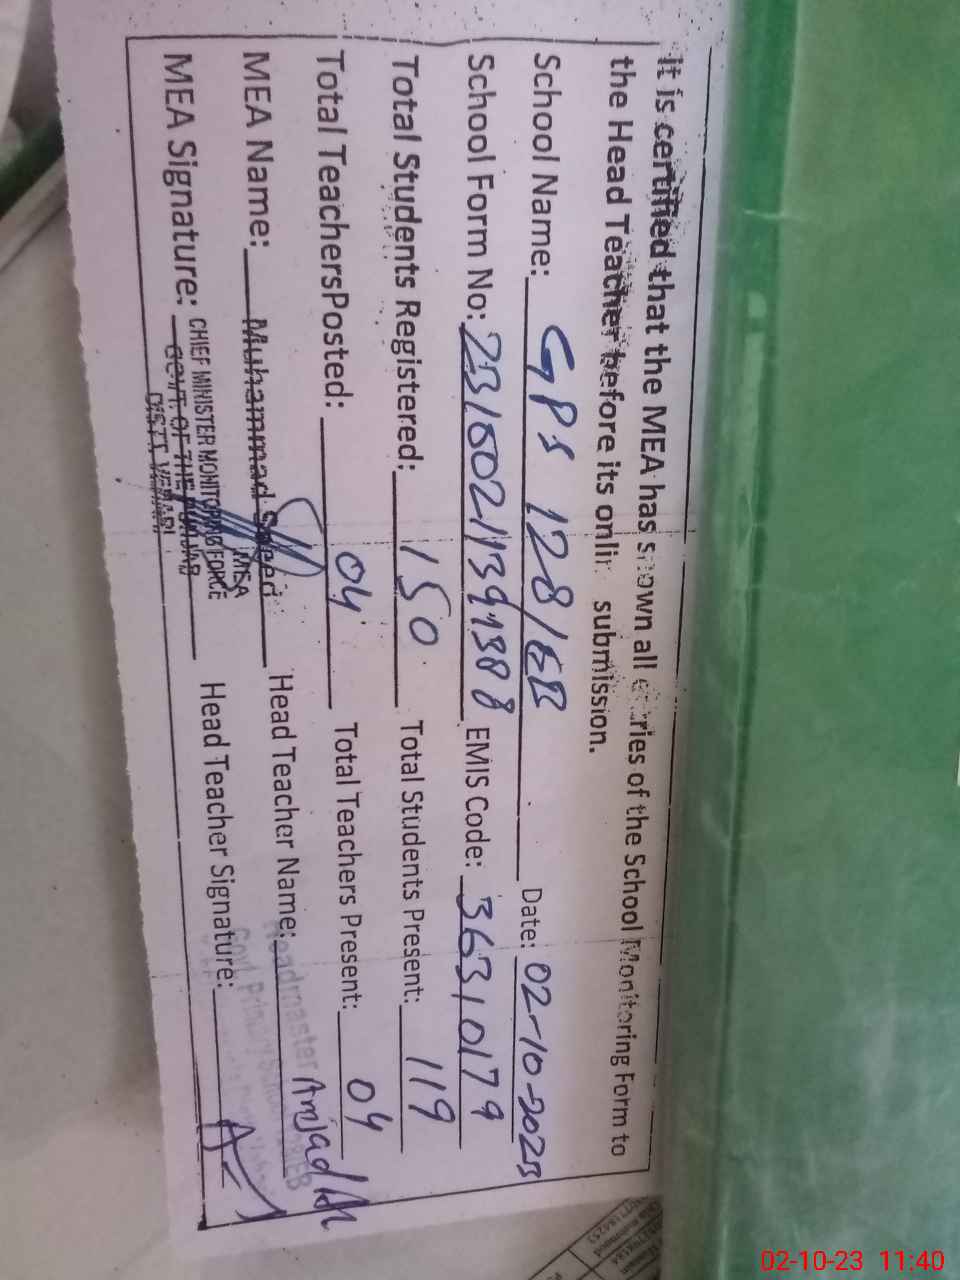 It is certified that the MEA has shown all entries of the School Monitoring Form to
the Head Teacher before its online submission.
School Name: GPS 128/EB Date: 02-10-2023
School Form No: EMIS Code: 36310179
Total Students Registered: 150 Total Students Present: 119
Total TeachersPosted: 04 Total Teachers Present: 04
MEA Name: Muhammad Saeed Head Teacher Name: Amjad Ali
MEA
MEA Signature: Head Teacher Signature:
CHIEF MINISTER MONITORING FORCE
GOVT. OF THE PUNJAB
DISTT. VEHARI
Headmaster
Govt. Primary School
02-10-23 11:40